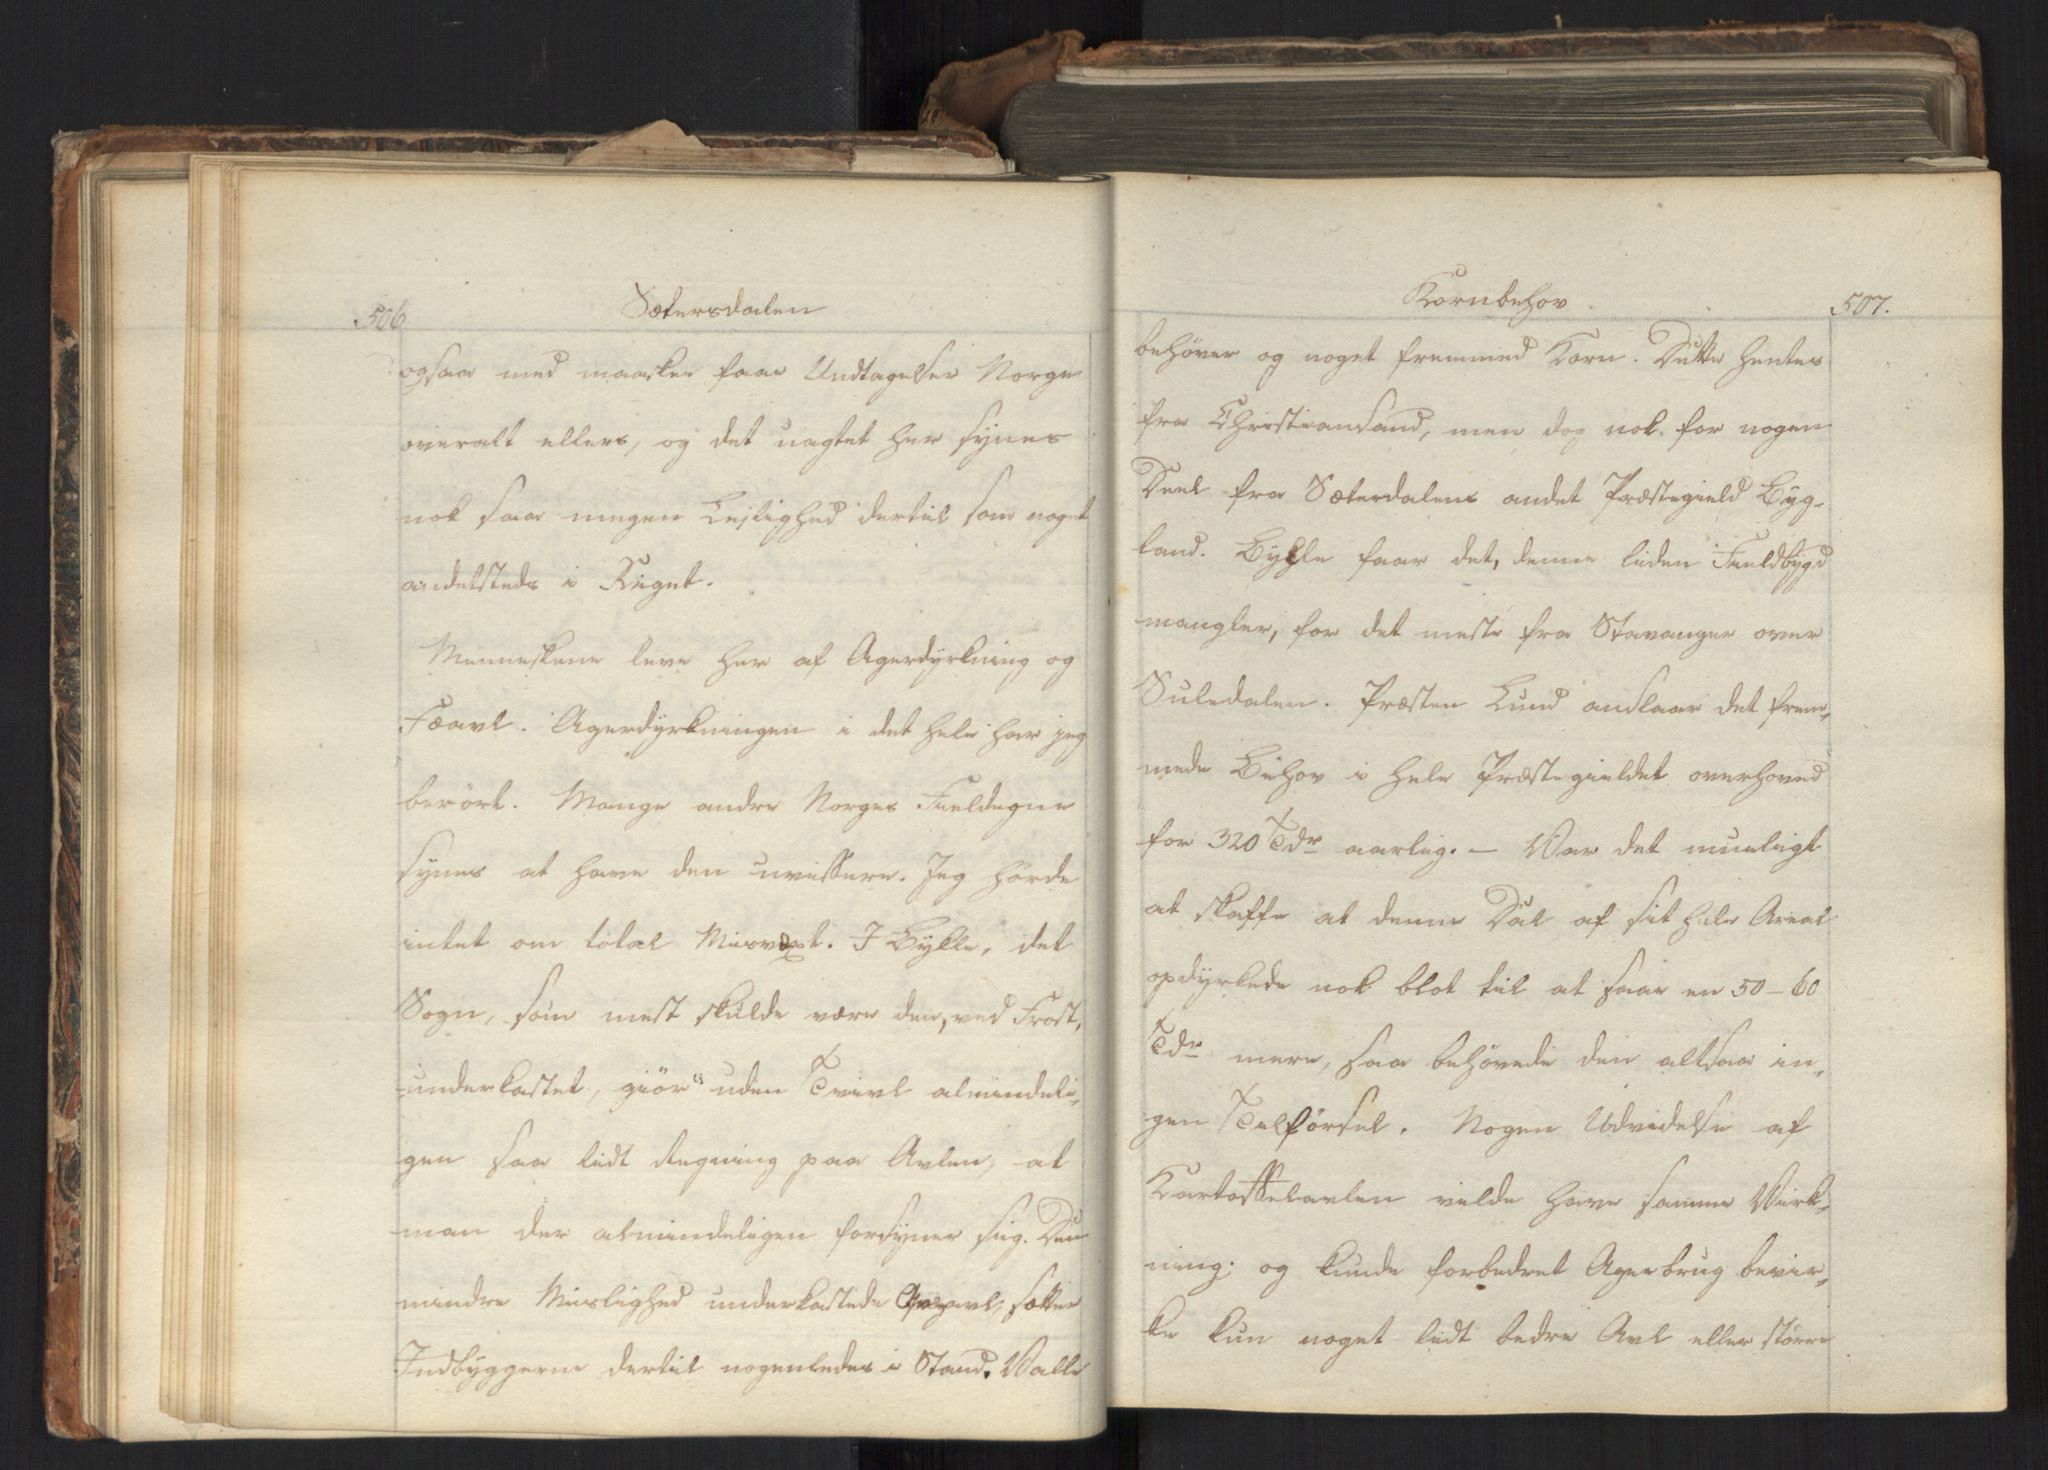 506
Sætersdalen
ogsaa med maaskee faae Undtagelser Norge
overalt ellers, og det uagtet her synes
nok saa megen Leilighed dertil som noget
andetsteds i Riget.
Menneskene leve her af Agerdyrkning og
Fæavl. Agerdyrkningen i det hele har jeg
berört. Mange andre Norges Fieldegne
synes at have den uvissere. Jeg hörde
intet om total Misvæxt. I Bykle, det
Sogn, som mest skulde være den, ved Frost,
underkastet, giöres uden Tvivl almindeli-
gen saa lidt Regning paa Avlen, at
man der almindeligen forsyner sig. Den
mindre Mislighed underkastede Qvægavl, sætter
Indbyggerne dertil nogenledes i Stand. Valle
Kornbehov
507.
behöver og noget fremmed Korn. Dette hentes
fra Christiansand, men dog nok for nogen
Deel fra Sæterdalens andet Præstegield Byg-
land. Bykle faar det, denne liden Fieldbygd
mangler, for det meste fra Stavanger over
Suledalen. Præsten Lund anslaar det frem-
mede Behov i hele Præstegieldet overhoved
for 320 Tdr aarlig. — Var det mueligt
at skaffe at denne Dal af sit hele Areal
opdyrkede nok blot til at saae en 50-60
Tdr mere, saa behövede den altsaa in-
gen Tilförsel. Nogen Udvidelse af
Kartoffelavlen vilde have samme Virk-
ning; og kunde forbedret Agerbrug bevir-
ke kun noget lidt bedre Avl eller större